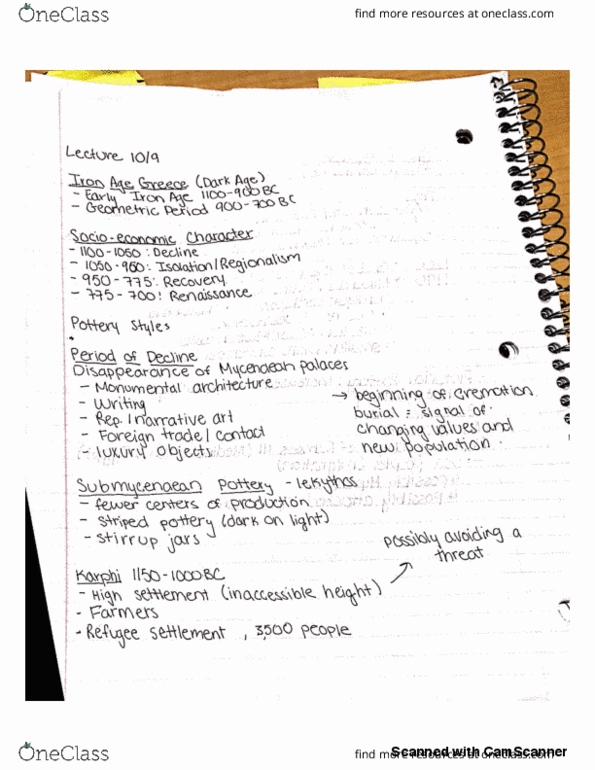 OneClass
find more resources at oneclass.com
Lecture 10/9
Iron Age Greece (Dark Age)
- Early Iron Age 1100-900 BC
- Geometric Period 900-700 BC
Socio-economic Character
- 1100-1050: Decline
- 1050-950: Isolation/Regionalism
- 950-775: Recovery
- 775-700: Renaissance
Pottery Styles
Period of Decline
Disappearance of Mycenaean palaces
- Monumental architecture
- Writing
- Rep./narrative art
- Foreign trade/contact
- luxury objects
→ beginning of cremation
burial = signal of
changing values and
new population.
Submycenaean Pottery - lekythos
- fewer centers of production
- striped pottery (dark on light)
- stirrup jars
Karphi 1150-1000 BC
- High settlement (inaccessible height)
possibly avoiding a
threat
- Farmers
- Refugee settlement, 3,500 people
OneClass
find more resources at oneclass.com
Scanned with CamScanner